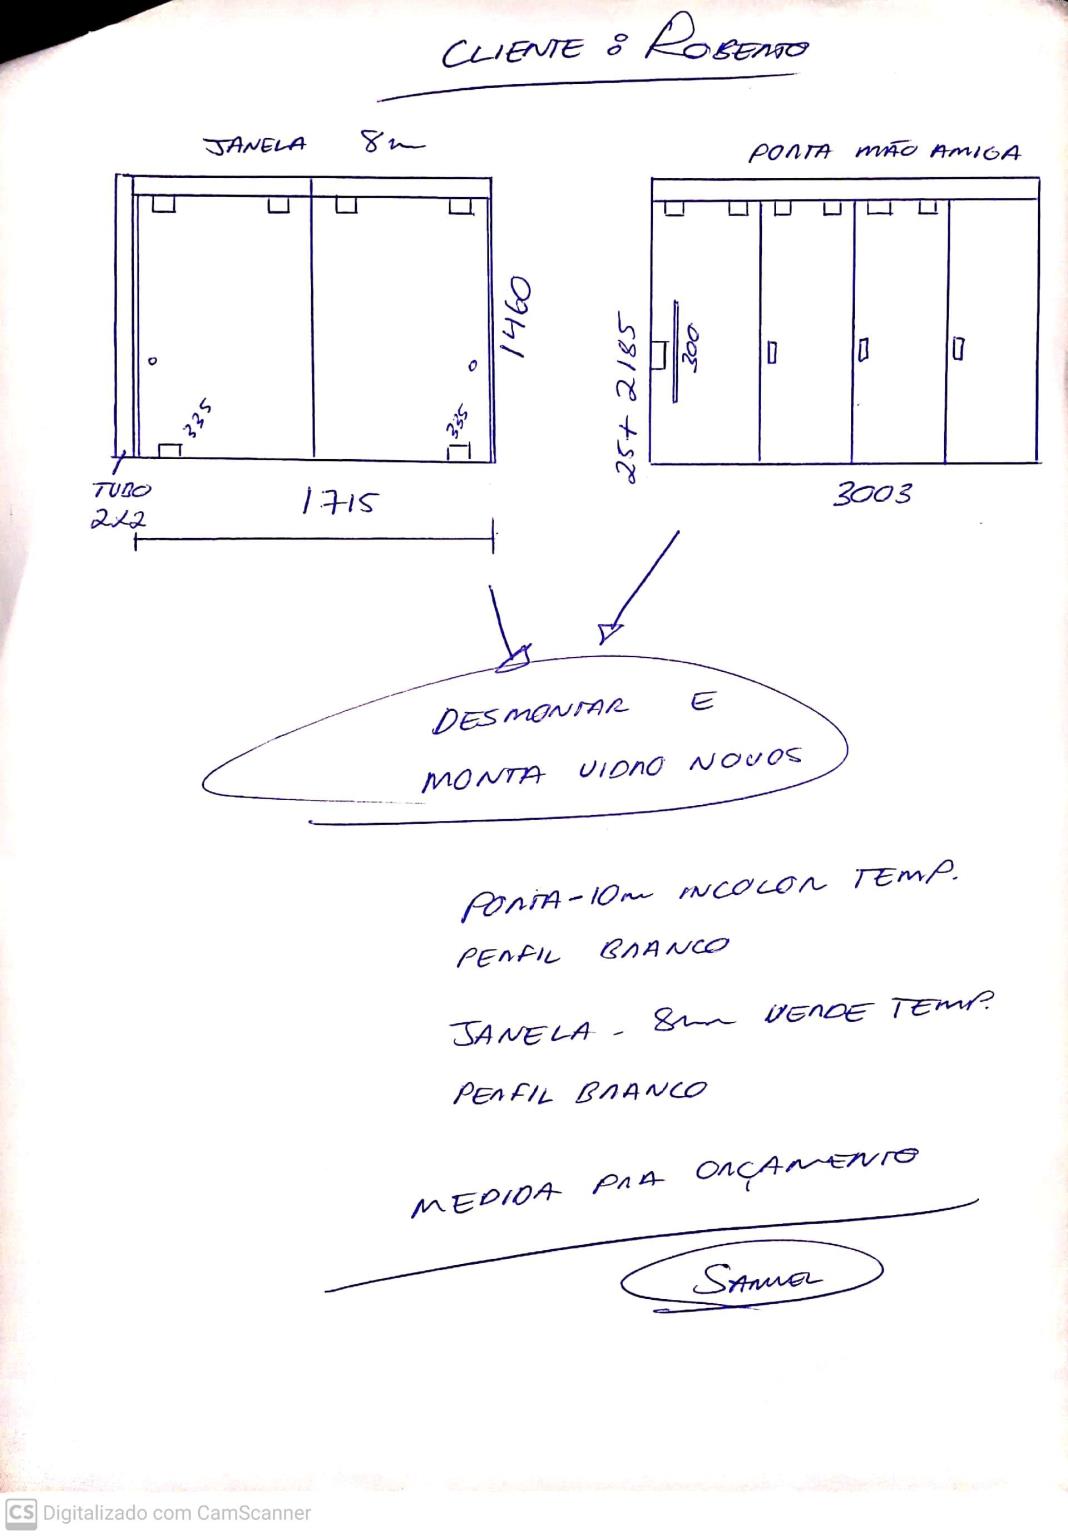 CLIENTE : ROBERTO
JANELA 8m
PORTA MÃO AMIGA
1460
335
335
TUBO
2x2
1715
25+2185
300
3003
DESMONTAR E
MONTA VIDRO NOVOS
PORTA-10m INCOLOR TEMP.
PERFIL BRANCO
JANELA - 8mm VERDE TEMP.
PERFIL BRANCO
MEDIDA PRA ORÇAMENTO
SAMUEL
CS Digitalizado com CamScanner